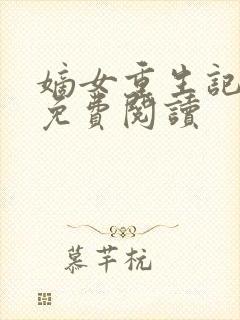 嫡女重生記
免費閱讀
慕芊杬